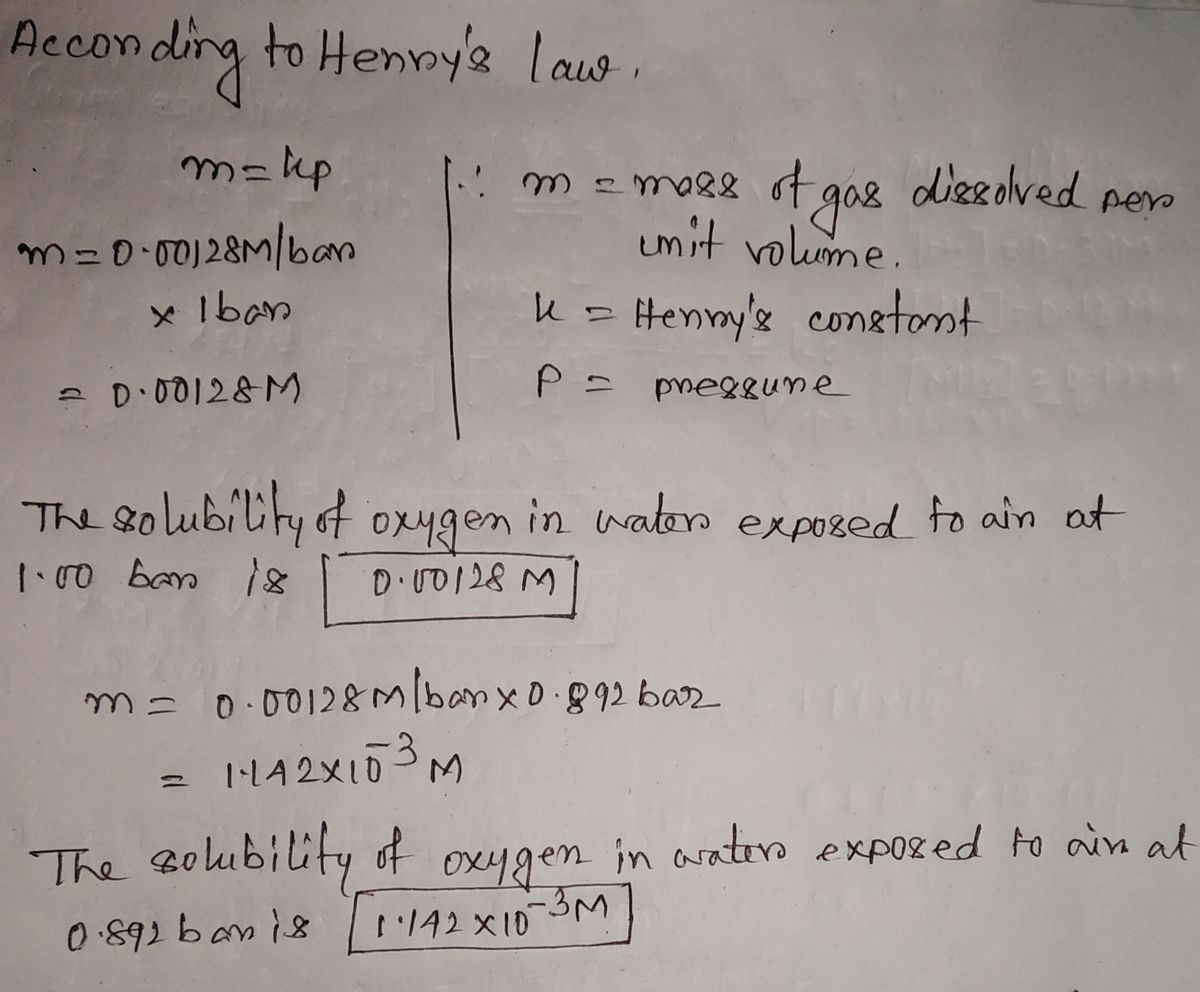 According to Henry's law,
m = kp
m = 0.00128M/bar
x 1bar
= 0.00128M
∵ m = mass of gas dissolved per
unit volume.
k = Henry's constant
P = pressure
The solubility of oxygen in water exposed to air at
1.00 bar is 0.00128 M
m = 0.00128M/bar x 0.892 bar
= 1.142x10⁻³ M
The solubility of oxygen in water exposed to air at
0.892 bar is 1.142 x10⁻³M